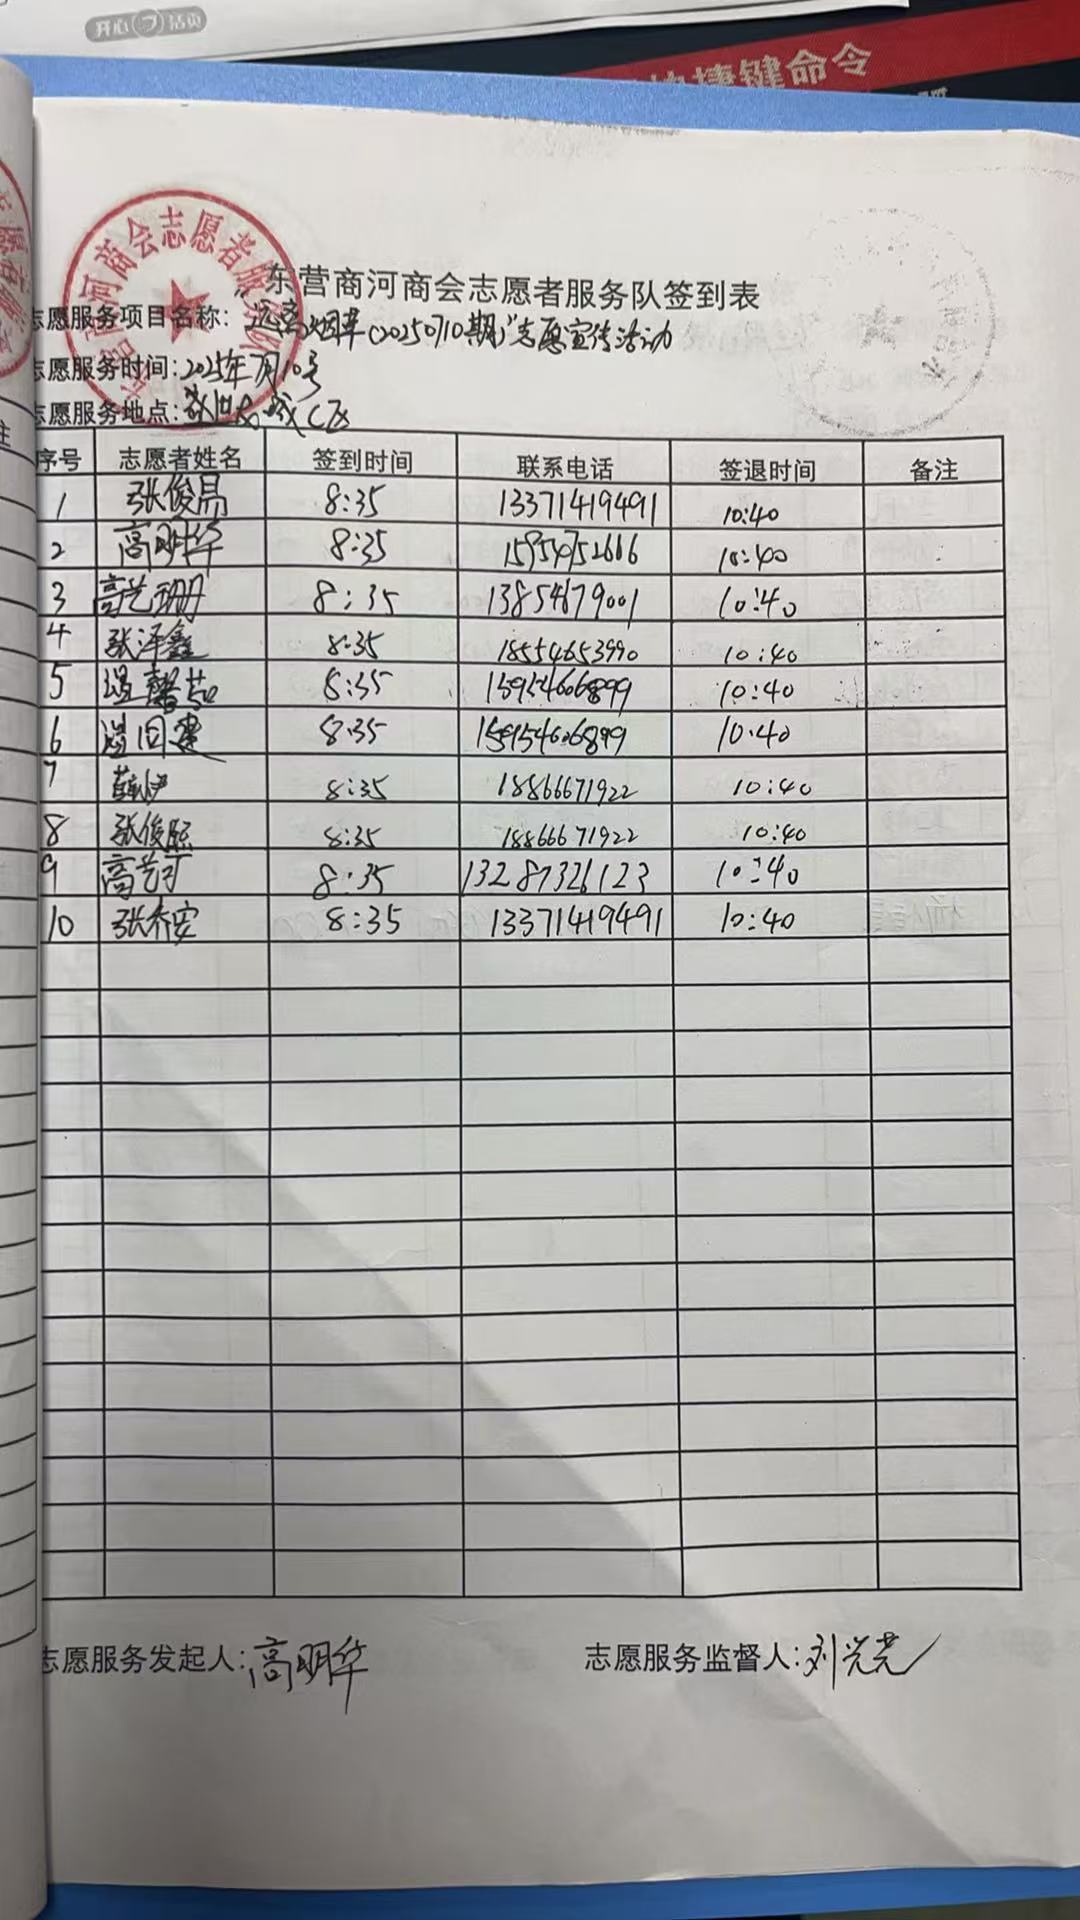 开心 活页
快捷键命令
东营商河商会志愿者服务队签到表
志愿服务项目名称: 远离烟草(20250710期)"志愿宣传活动
志愿服务时间:2025年7月10号
志愿服务地点: 城C区
序号 志愿者姓名 签到时间 联系电话 签退时间 备注
1 张俊易 8:35 13371419491 10:40
2 高明华 8:35 15954752666 10:40
3 高艺珊 8:35 13854679001 10:40
4 张泽鑫 8:35 18554653990 10:40
5 温馨茹 8:35 15954606899 10:40
6 温国建 8:35 15954606899 10:40
7 8:35 18866671922 10:40
8 张俊熙 8:35 18866671922 10:40
9 高艺可 8:35 13287326123 10:40
10 张乔安 8:35 13371419491 10:40
志愿服务发起人:高明华 志愿服务监督人:刘光亮